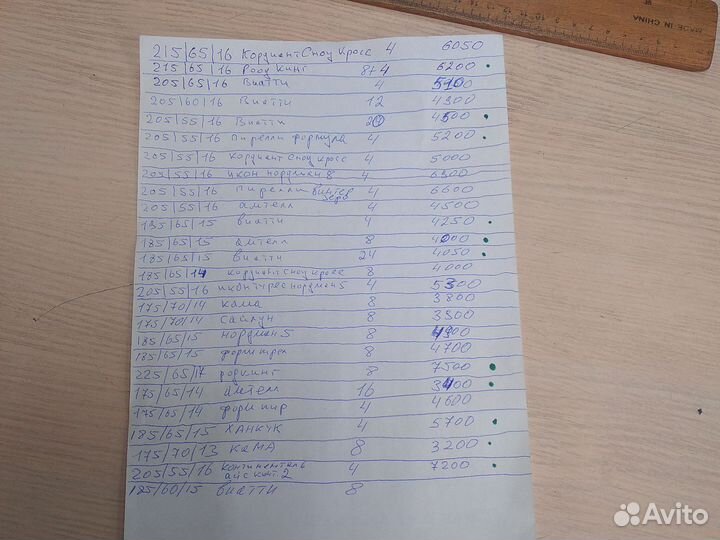 MADE IN CHINA
215/65/16 Кордиант Сноу Кросс 4 6050
215/65/16 Роад Кинг 8+4 6200
205/65/16 Виатти 4 5100
205/60/16 Виатти 12 4300
205/55/16 Виатти 20 4500
205/55/16 Пирелли формула 4 5200
205/55/16 Кордиант Сноу Кросс 4 5000
205/55/16 икон нордман 8 4 6300
205/55/16 Пирелли Винтер Зеро 4 6600
205/55/16 амтелл 4 4500
195/65/15 виатти 4 4250
185/65/15 амтелл 8 4000
185/65/15 виатти 24 4050
185/65/14 кордиант сноу кросс 8 4000
205/55/16 4 5300
175/70/14 Кама 8 3800
175/70/14 Сайлун 8 3300
185/65/15 нордман 5 8 4900
185/65/15 8 4700
225/65/17 родкинг 8 7500
175/65/14 амтелл 16 3400
175/65/14 форм пир 4 4600
185/65/15 ХАНКУК 4 5700
175/70/13 КАМА 8 3200
205/55/16 континенталь айс конт. 2 4 7200
185/60/15 виатти 8
Avito